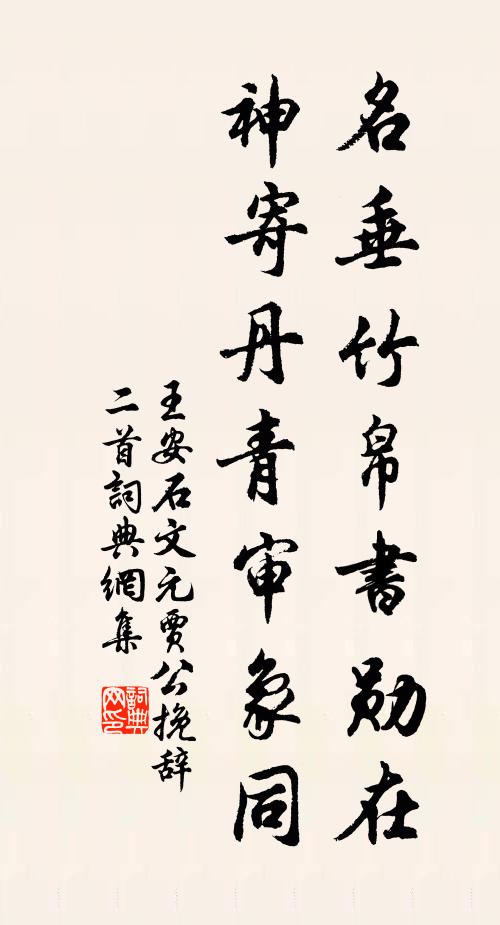 名垂竹帛書勋在
神寄丹青审象同
王安石文元賈公挽辞
二首詞典網集
詞典网印